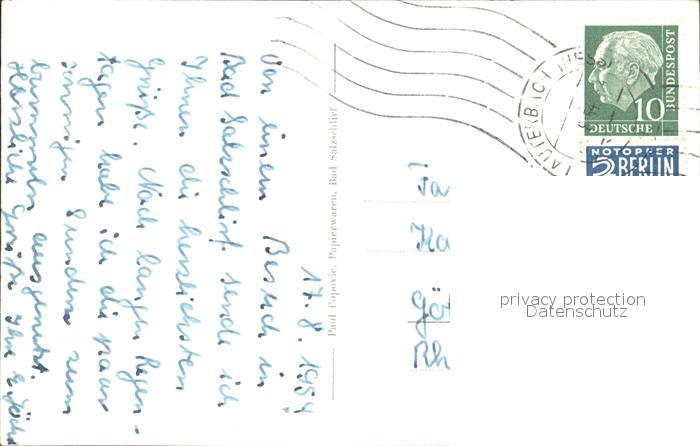 17. 8. 1954
Von einem Besuch in
Bad Salzschlirf sende ich
Ihnen die herzlichsten
Grüße. Nach langen Regen-
tagen habe ich die paar
sonnigen Stunden zum
bummeln ausgenutzt.
Herzliche Grüße Ihr
Paul Popovic, Papierwaren, Bad Salzschlirf
LAUTERBACH (HESS)
10
DEUTSCHE
BUNDESPOST
NOTOPFER
2 BERLIN
Fa
Ka
Gö
Rh
privacy protection
Datenschutz